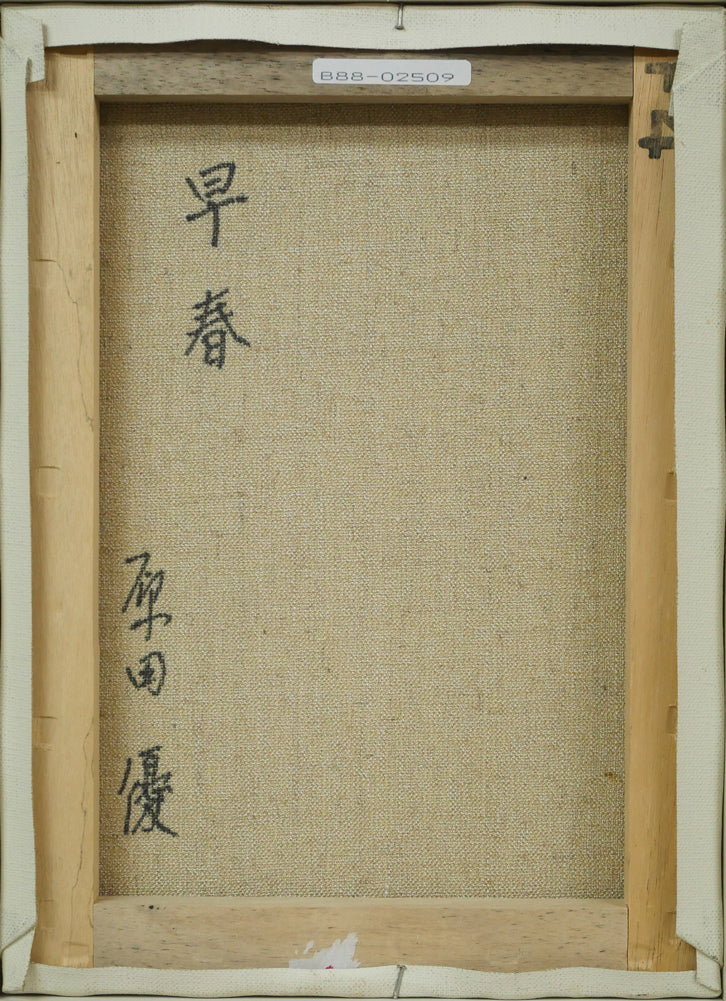 B88-02509
早春
原田 優